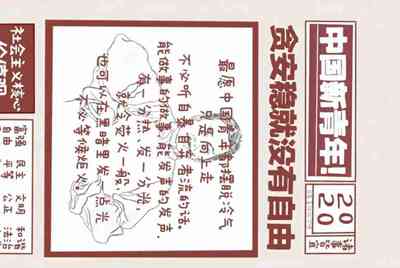 中国新青年!
贪安稳就没有自由
20
20
最愿中国青年都摆脱冷气
只是向上走
不必听自暴自弃者流的话。
能做事的做事,能发声的发声。
有一分热,发一分光,
就令萤火一般,
也可以在黑暗里发一点光
不必等候炬火
社会主义核心
价值观
富强 民主 文明 和谐
自由 平等 公正 法治